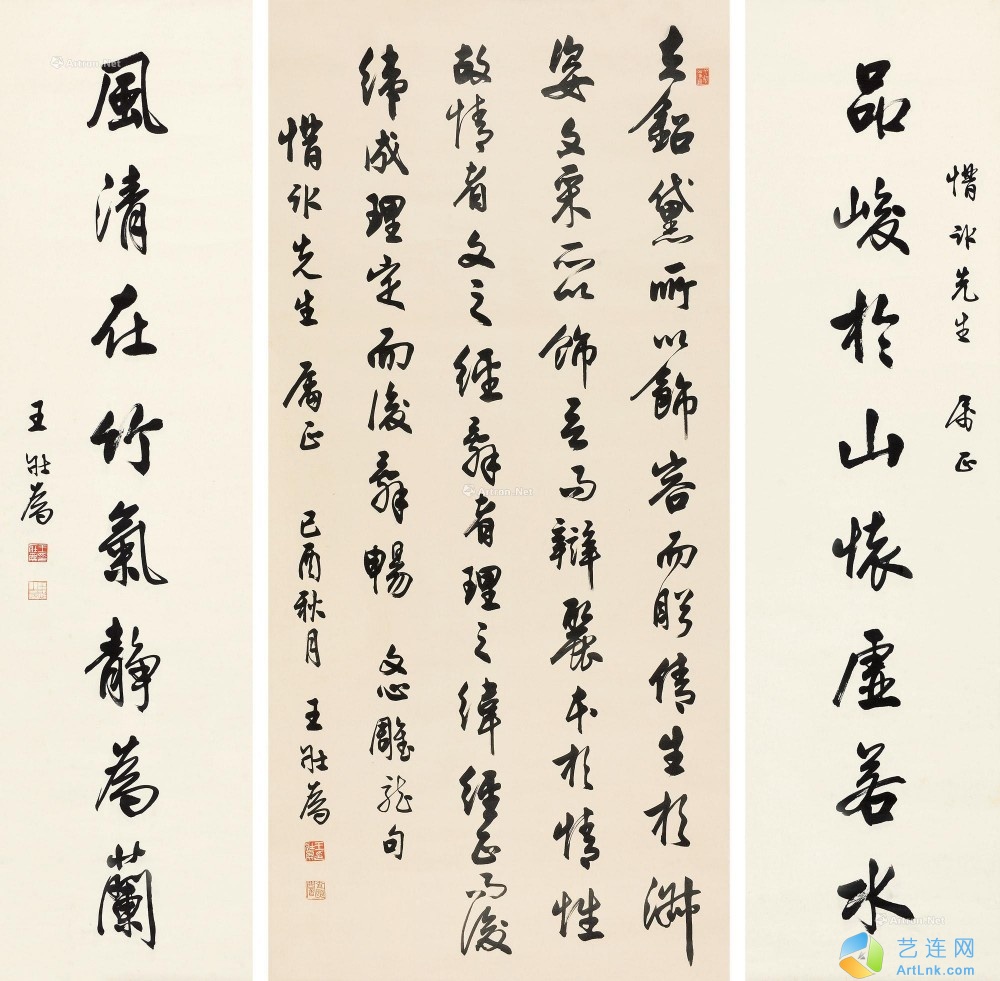 惜先生 屬正
品峻於山懷虛若水
夫鉛黛所以飾容而盼倩生於淑
姿文采所以飾言而辯麗本於情性
故情者文之經辭者理之緯經正而後
緯成理定而後辭暢 文心雕龍句
惜先生 屬正 己酉秋月 王壯為
風清在竹氣靜為蘭
王壯為
Artron.Net
Artron.Net
艺连网
ArtLnk.com